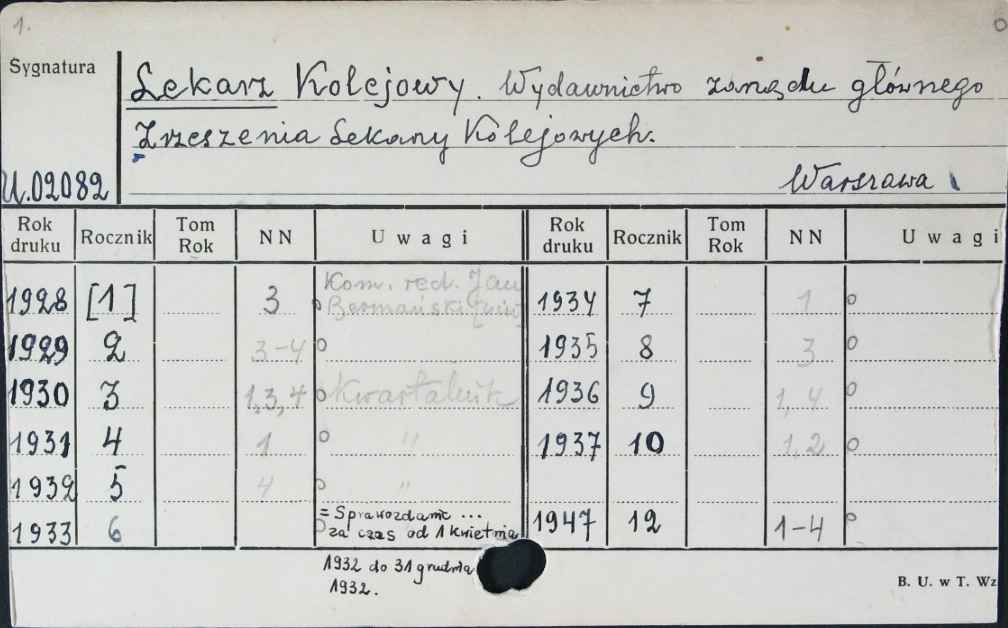 1.
Sygnatura
Lekarz Kolejowy. Wydawnictwo zarządu głównego
Zrzeszenia Lekarzy Kolejowych.
U.02082
Warszawa
Rok druku Rocznik Tom Rok NN Uwagi Rok druku Rocznik Tom Rok NN Uwagi
1928 [1] 3 Kom. red. Jan 1934 7 1 o
1929 2 3-4 o 1935 8 3 o
1930 3 1,3,4 o Kwartalnik 1936 9 1,4 o
1931 4 1 o " 1937 10 1,2 o
1932 5 4 o "
1933 6 o = Sprawozdanie ... 1947 12 1-4 o
za czas od 1 kwietnia
1932 do 31 grudnia
1932.
B. U. w T. Wz